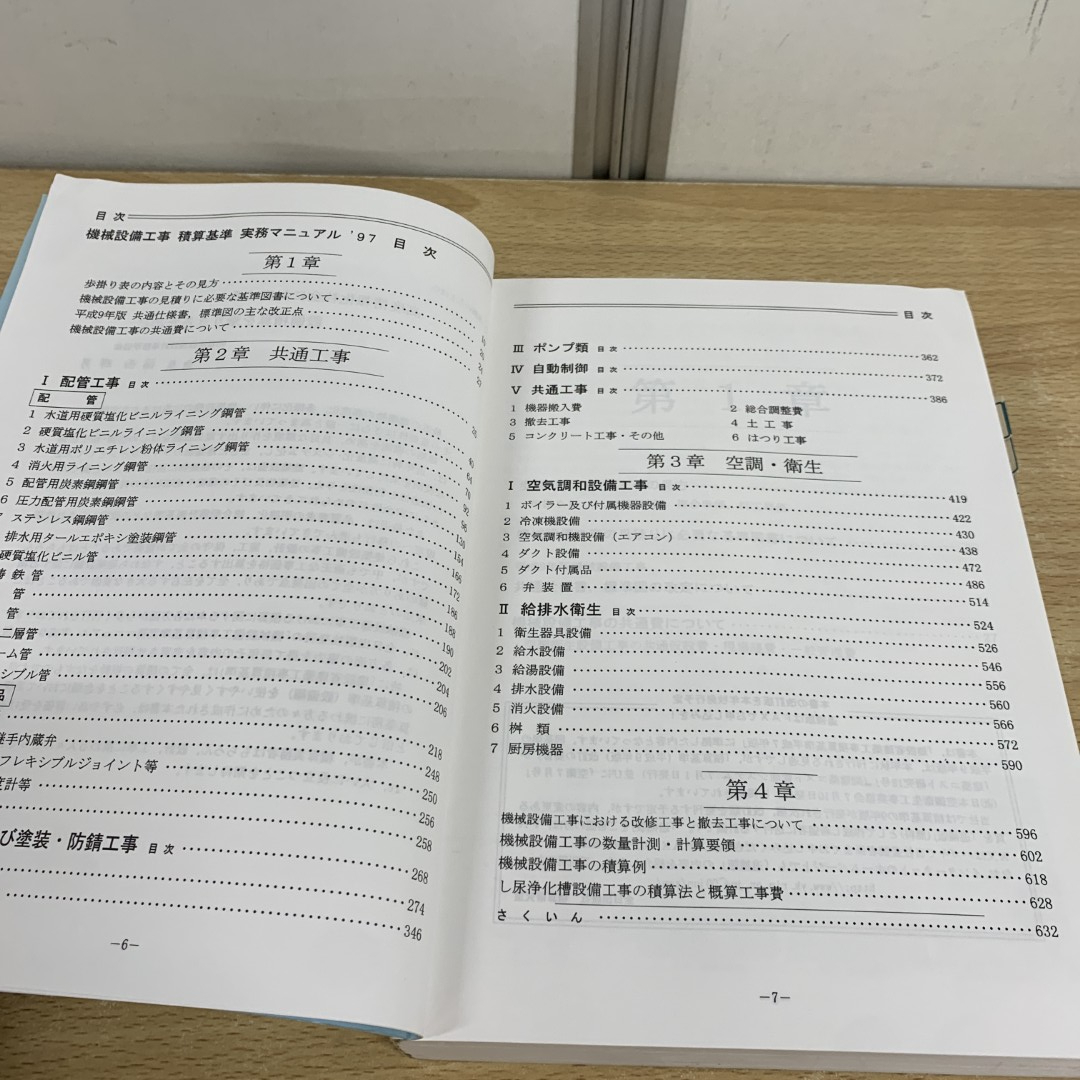 目次
機械設備工事 積算基準 実務マニュアル '97 目次
第1章
歩掛り表の内容とその見方
機械設備工事の見積りに必要な基準図書について
平成9年版 共通仕様書，標準図の主な改正点
機械設備工事の共通費について
第2章 共通工事
I 配管工事 目次
配 管
1 水道用硬質塩化ビニルライニング鋼管
2 硬質塩化ビニルライニング鋼管
3 水道用ポリエチレン粉体ライニング鋼管
4 消火用ライニング鋼管
5 配管用炭素鋼鋼管
6 圧力配管用炭素鋼鋼管
ステンレス鋼鋼管
排水用タールエポキシ塗装鋼管
硬質塩化ビニル管
鋳鉄管
管
管
二層管
ーム管
シブル管
品
継手内蔵弁
フレキシブルジョイント等 248
度計等 250
256
び塗装・防錆工事 目次 258
268
274
346
―6―
目次
III ポンプ類 目次 362
IV 自動制御 目次 372
V 共通工事 目次 386
1 機器搬入費 2 総合調整費
3 撤去工事 4 土工事
5 コンクリート工事・その他 6 はつり工事
第3章 空調・衛生
I 空気調和設備工事 目次 419
1 ボイラー及び付属機器設備 422
2 冷凍機設備 430
3 空気調和機設備（エアコン） 438
4 ダクト設備 472
5 ダクト付属品 486
6 弁装置 514
II 給排水衛生 目次 524
1 衛生器具設備 526
2 給水設備 546
3 給湯設備 556
4 排水設備 560
5 消火設備 566
6 桝類 572
7 厨房機器 590
第4章
機械設備工事における改修工事と撤去工事について 596
機械設備工事の数量計測・計算要領 602
機械設備工事の積算例 618
し尿浄化槽設備工事の積算法と概算工事費 628
さくいん 632
―7―